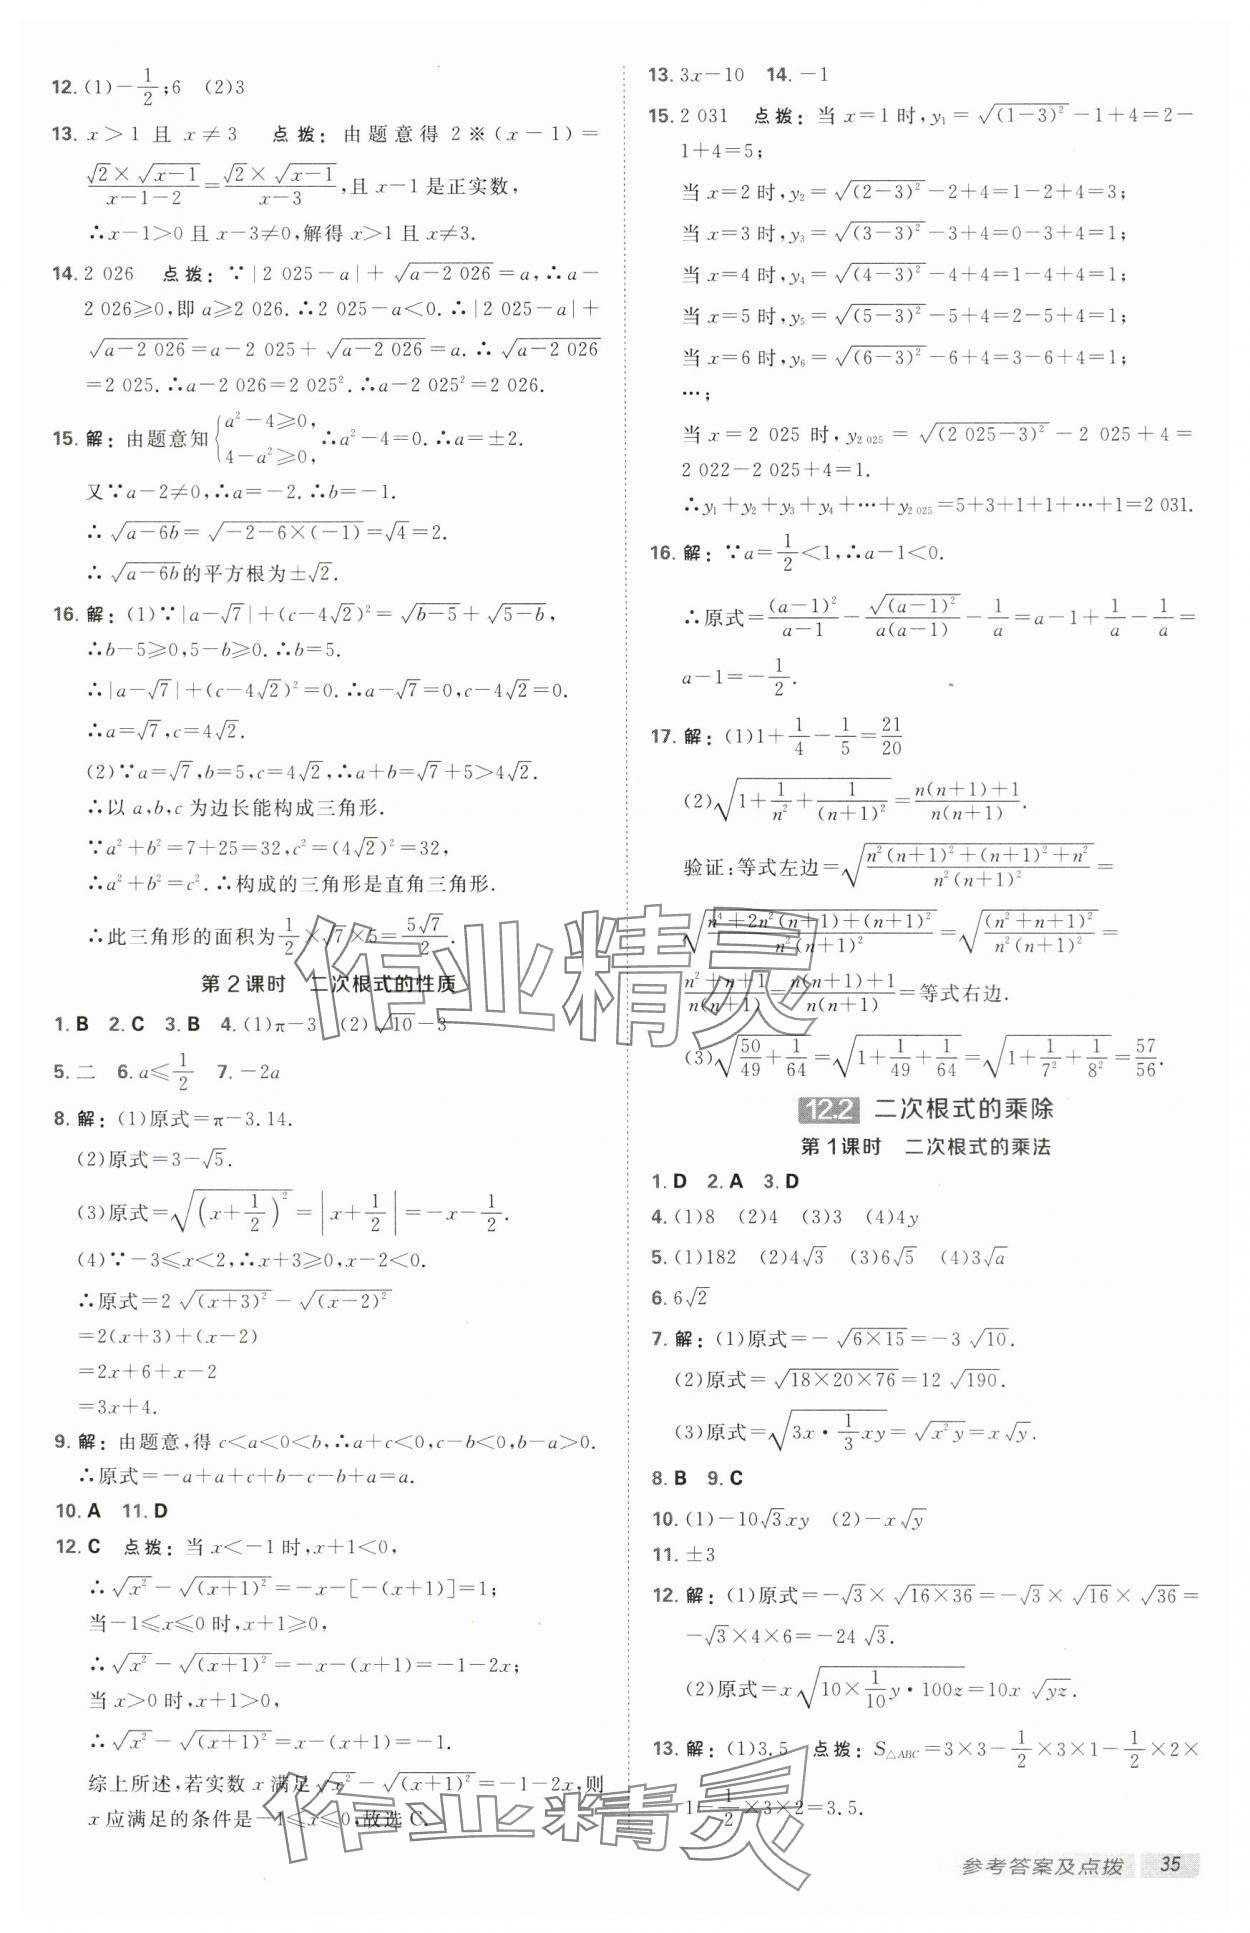 12. (1)－1/2;6　(2)3
13. x＞1 且 x≠3　点拨：由题意得 2※(x－1)＝
(√2×√(x－1))/(x－1－2)＝(√2×√(x－1))/(x－3),且 x－1 是正实数,
∴x－1＞0 且 x－3≠0,解得 x＞1 且 x≠3.
14. 2 026　点拨：∵|2 025－a|＋√(a－2 026)＝a,∴a－
2 026≥0,即 a≥2 026.∴2 025－a＜0.∴|2 025－a|＋
√(a－2 026)＝a－2 025＋√(a－2 026)＝a.∴√(a－2 026)
＝2 025.∴a－2 026＝2 025².∴a－2 025²＝2 026.
15. 解：由题意知{a²－4≥0, 4－a²≥0, ∴a²－4＝0.∴a＝±2.
又∵a－2≠0,∴a＝－2.∴b＝－1.
∴√(a－6b)＝√(－2－6×(－1))＝√4＝2.
∴√(a－6b)的平方根为±√2.
16. 解：(1)∵|a－√7|＋(c－4√2)²＝√(b－5)＋√(5－b),
∴b－5≥0,5－b≥0.∴b＝5.
∴|a－√7|＋(c－4√2)²＝0.∴a－√7＝0,c－4√2＝0.
∴a＝√7,c＝4√2.
(2)∵a＝√7,b＝5,c＝4√2,∴a＋b＝√7＋5＞4√2.
∴以 a,b,c 为边长能构成三角形.
∵a²＋b²＝7＋25＝32,c²＝(4√2)²＝32,
∴a²＋b²＝c².∴构成的三角形是直角三角形.
∴此三角形的面积为1/2×√7×5＝5√7/2.
第2课时　二次根式的性质
1. B　2. C　3. B　4. (1)π－3　(2)√10－3
5. 二　6. a≤1/2　7. －2a
8. 解：(1)原式＝π－3.14.
(2)原式＝3－√5.
(3)原式＝√((x＋1/2)²)＝|x＋1/2|＝－x－1/2.
(4)∵－3≤x＜2,∴x＋3≥0,x－2＜0.
∴原式＝2√((x＋3)²)－√((x－2)²)
＝2(x＋3)＋(x－2)
＝2x＋6＋x－2
＝3x＋4.
9. 解：由题意,得 c＜a＜0＜b,∴a＋c＜0,c－b＜0,b－a＞0.
∴原式＝－a＋a＋c＋b－c－b＋a＝a.
10. A　11. D
12. C　点拨：当 x＜－1 时,x＋1＜0,
∴√(x²)－√((x＋1)²)＝－x－[－(x＋1)]＝1;
当－1≤x≤0 时,x＋1≥0,
∴√(x²)－√((x＋1)²)＝－x－(x＋1)＝－1－2x;
当 x＞0 时,x＋1＞0,
∴√(x²)－√((x＋1)²)＝x－(x＋1)＝－1.
综上所述,若实数 x 满足√(x²)－√((x＋1)²)＝－1－2x,则
x 应满足的条件是－1≤x≤0,故选 C.
13. 3x－10　14. －1
15. 2 031　点拨：当 x＝1 时,y₁＝√((1－3)²)－1＋4＝2－
1＋4＝5;
当 x＝2 时,y₂＝√((2－3)²)－2＋4＝1－2＋4＝3;
当 x＝3 时,y₃＝√((3－3)²)－3＋4＝0－3＋4＝1;
当 x＝4 时,y₄＝√((4－3)²)－4＋4＝1－4＋4＝1;
当 x＝5 时,y₅＝√((5－3)²)－5＋4＝2－5＋4＝1;
当 x＝6 时,y₆＝√((6－3)²)－6＋4＝3－6＋4＝1;
…;
当 x＝2 025 时,y₂ ₀₂₅＝√((2 025－3)²)－2 025＋4＝
2 022－2 025＋4＝1.
∴y₁＋y₂＋y₃＋y₄＋…＋y₂ ₀₂₅＝5＋3＋1＋1＋…＋1＝2 031.
16. 解：∵a＝1/2＜1,∴a－1＜0.
∴原式＝(a－1)²/(a－1)－√((a－1)²)/(a(a－1))－1/a＝a－1＋1/a－1/a＝
a－1＝－1/2.
17. 解：(1)1＋1/4－1/5＝21/20
(2)√(1＋1/n²＋1/(n＋1)²)＝(n(n＋1)＋1)/(n(n＋1)).
验证：等式左边＝√((n²(n＋1)²＋(n＋1)²＋n²)/(n²(n＋1)²))＝
√((n⁴＋2n²(n＋1)＋(n＋1)²)/(n²(n＋1)²))＝√((n²＋n＋1)²/(n²(n＋1)²))＝
(n²＋n＋1)/(n(n＋1))＝(n(n＋1)＋1)/(n(n＋1))＝等式右边.
(3)√(50/49＋1/64)＝√(1＋1/49＋1/64)＝√(1＋1/7²＋1/8²)＝57/56.
12.2 二次根式的乘除
第1课时　二次根式的乘法
1. D　2. A　3. D
4. (1)8　(2)4　(3)3　(4)4y
5. (1)182　(2)4√3　(3)6√5　(4)3√a
6. 6√2
7. 解：(1)原式＝－√(6×15)＝－3√10.
(2)原式＝√(18×20×76)＝12√190.
(3)原式＝√(3x·1/3xy)＝√(x²y)＝x√y.
8. B　9. C
10. (1)－10√3xy　(2)－x√y
11. ±3
12. 解：(1)原式＝－√3×√(16×36)＝－√3×√16×√36＝
－√3×4×6＝－24√3.
(2)原式＝x√(10×1/10y·100z)＝10x√(yz).
13. 解：(1)3.5　点拨：S△ABC＝3×3－1/2×3×1－1/2×2×
1－1/2×3×2＝3.5.
参考答案及点拨　35
作业精灵
作业精灵